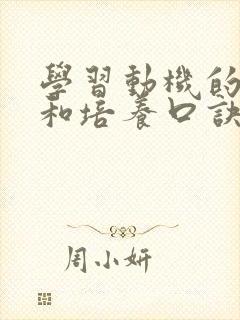 學習動機的
和培養口訣
周小妍